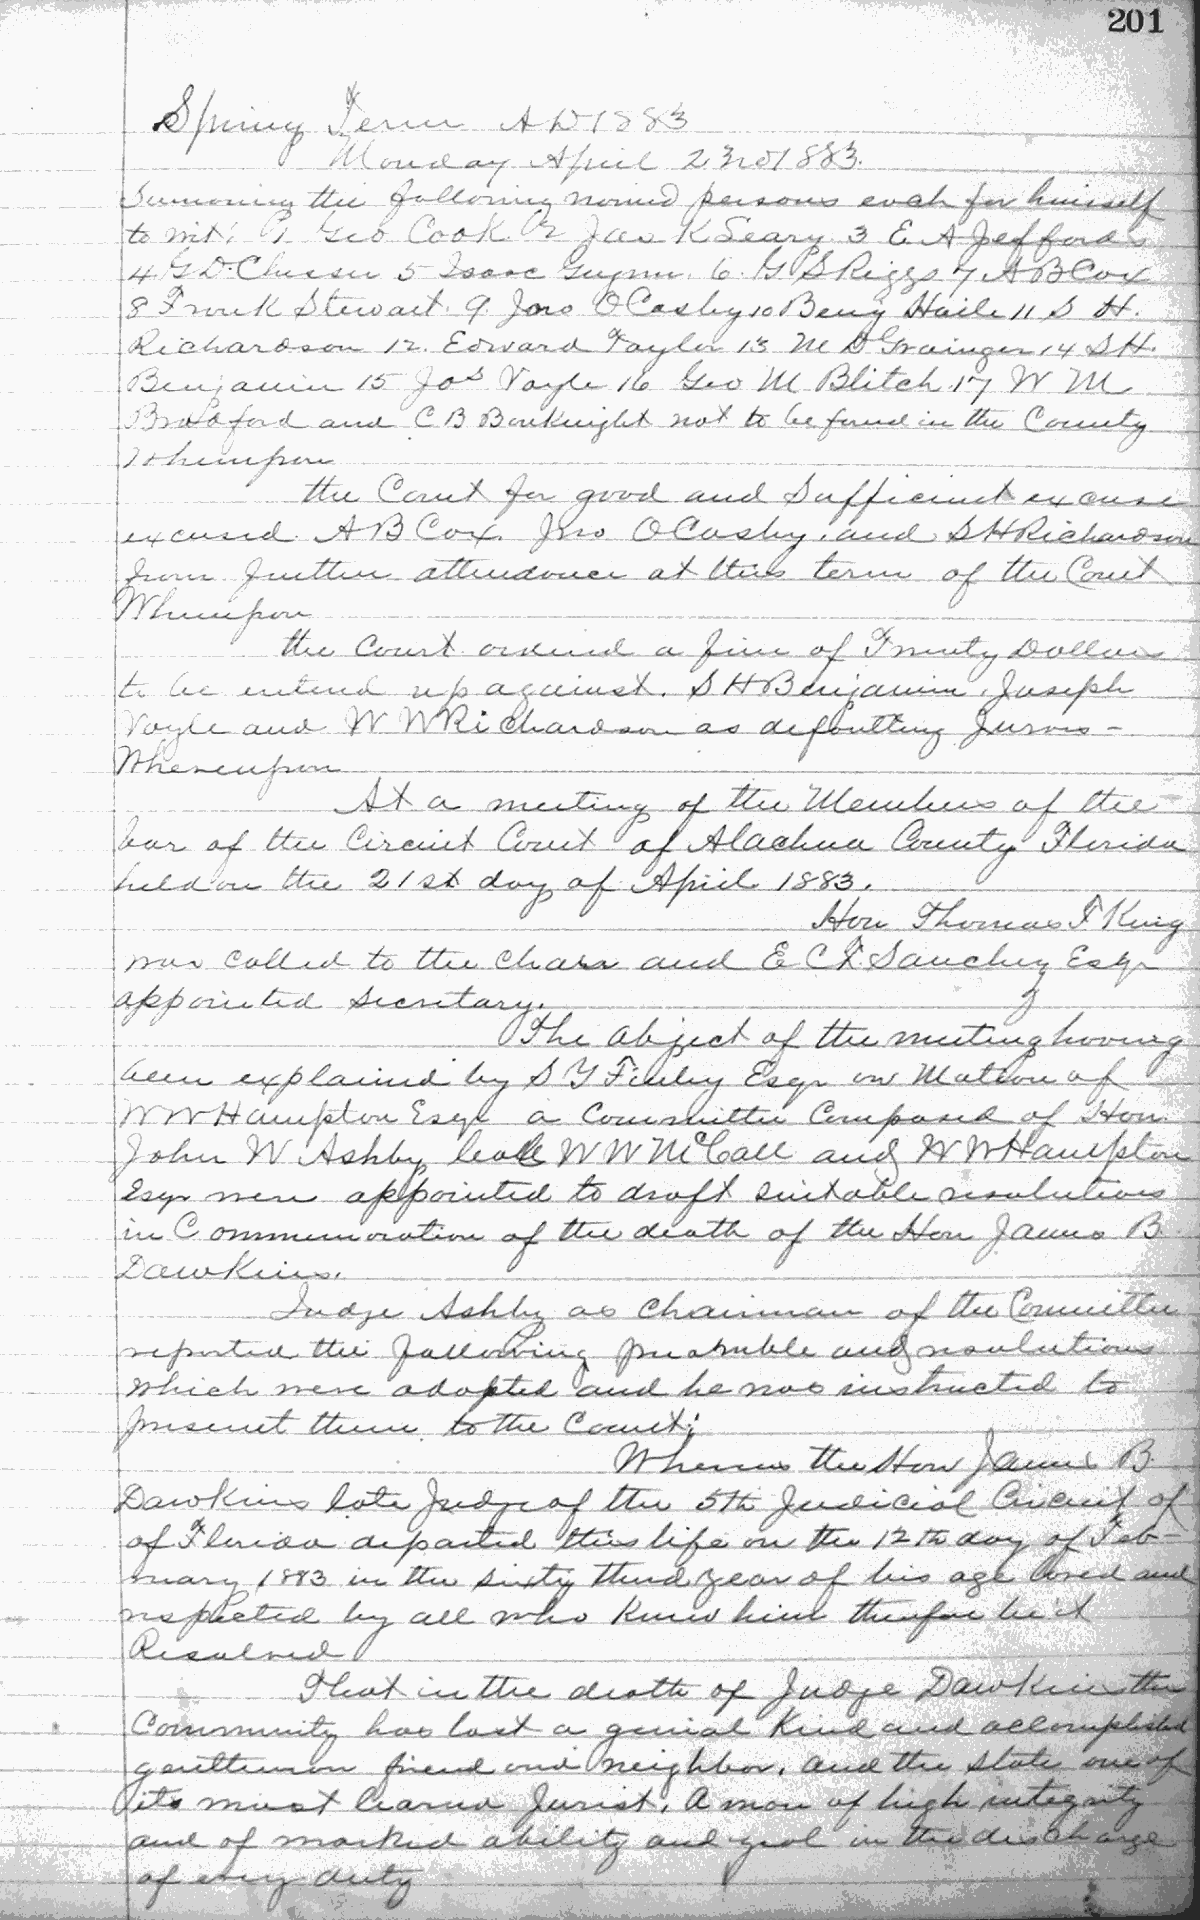 201
Spring Term AD 1883
Monday April 23rd 1883.
Sumoning the following named persons each for himself
to wit: 1 Geo Cook 2 Jas K Seary 3 E A Jeffords
4 G D. Chesser 5 Isaac Guynn. 6. G S Riggs 7 A B Cox
8 Frank Stewart. 9. Jno O Casby 10 Benj Haile 11 S H.
Richardson 12. Edward Taylor 13 M D Grainger 14 S H.
Benjamin 15 Jos Vogle 16 Geo M Blitch 17 W M
Bradford and C B Bouknight not to be found in the County
Whereupon
the Court for good and Sufficient excuse
excused A B Cox. Jno O Casby. and S H Richardson
from further attendance at this term of the Court
Whereupon
the Court ordered a fine of Twenty Dollars
to be entered up against. S H Benjamin, Joseph
Vogle and W W Richardson as defaulting Jurors -
Whereupon
At a meeting of the Members of the
bar of the Circuit Court of Alachua County Florida
held on the 21st day of April 1883.
Hon Thomas F King
was called to the chair and E C F. Sanchez Esqr
appointed Secretary.
The object of the meeting having
been explained by S Y Finley Esqr on Motion of
W W Hampton Esqr a Committee Composed of Hon
John W Ashby W W McCall and W W Hampton
Esqr were appointed to draft suitable resolutions
in Commemoration of the death of the Hon James B.
Dawkins.
Judge Ashby as Chairman of the Committee
reported the following preamble and resolutions
which were adopted and he was instructed to
present them to the Court:
Whereas the Hon James B.
Dawkins late Judge of the 5th Judicial Circuit of
of Florida departed this life on the 12th day of Feb-
ruary 1883 in the sixty third year of his age loved and
respected by all who knew him therefore be it
Resolved
That in the death of Judge Dawkins the
Community has lost a genial Kind and accomplished
gentleman friend and neighbor, and the State one of
its most learned Jurist, A man of high integrity
and of marked ability and zeal in the discharge
of every duty